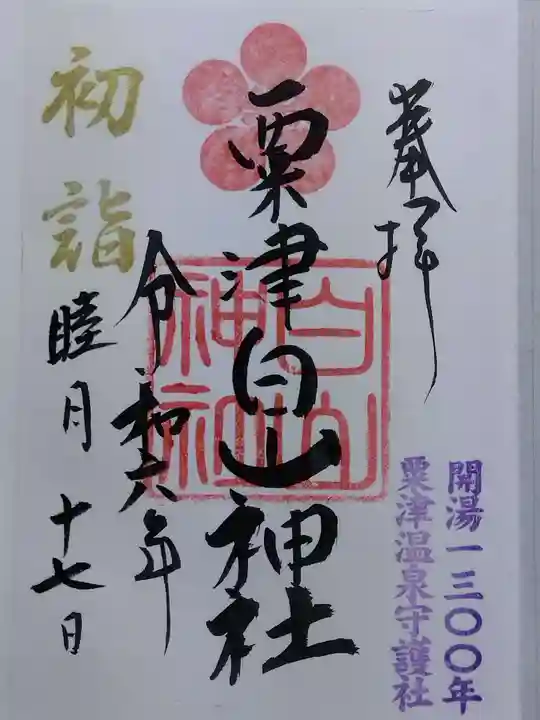 奉拝
開湯一三〇〇年
粟津温泉守護社
粟津白山神社
白山
神社
令和六年
初詣
睦月十七日